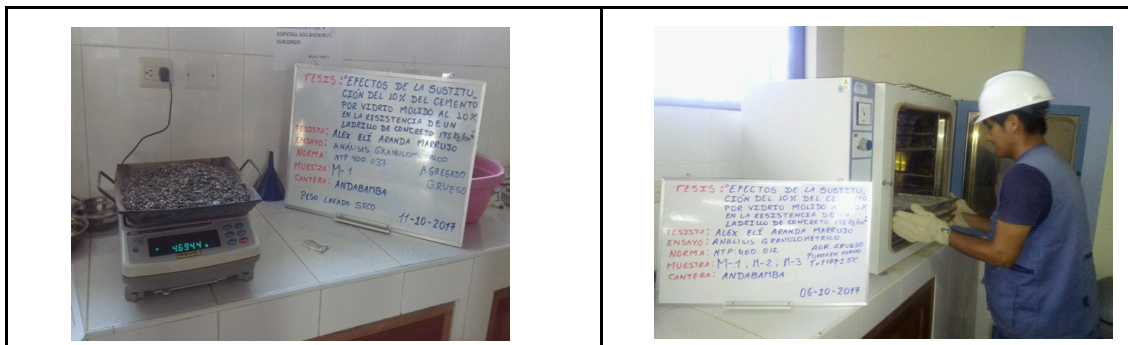 TESIS: "EFECTOS DE LA SUSTITU_
CIÓN DEL 10% DEL CEMENTO
POR VIDRIO MOLIDO AL 10%
EN LA RESISTENCIA DE UN
LADRILLO DE CONCRETO 175 Kg/cm²
TESISTA: ALEX ELÍ ARANDA MARRUJO
ENSAYO: ANÁLISIS GRANULOMETRICO
NORMA: NTP 400.037
AGREGADO
MUESTRA: M-1
GRUESO
CANTERA: ANDABAMBA
PESO LAVADO SECO
11-10-2017
TESIS: "EFECTOS DE LA SUSTITU_
CIÓN DEL 10% DEL CEMENTO
POR VIDRIO MOLIDO A 10%
EN LA RESISTENCIA DE UN
LADRILLO DE CONCRETO
TESISTA: ALEX ELÍ ARANDA MARRUJO
ENSAYO: ANALISIS GRANULOMETRICO
NORMA: NTP: 400.012
AGR. GRUESO
MUESTRA: M-1; M-2; M-3
CANTERA: ANDABAMBA
06-10-2017